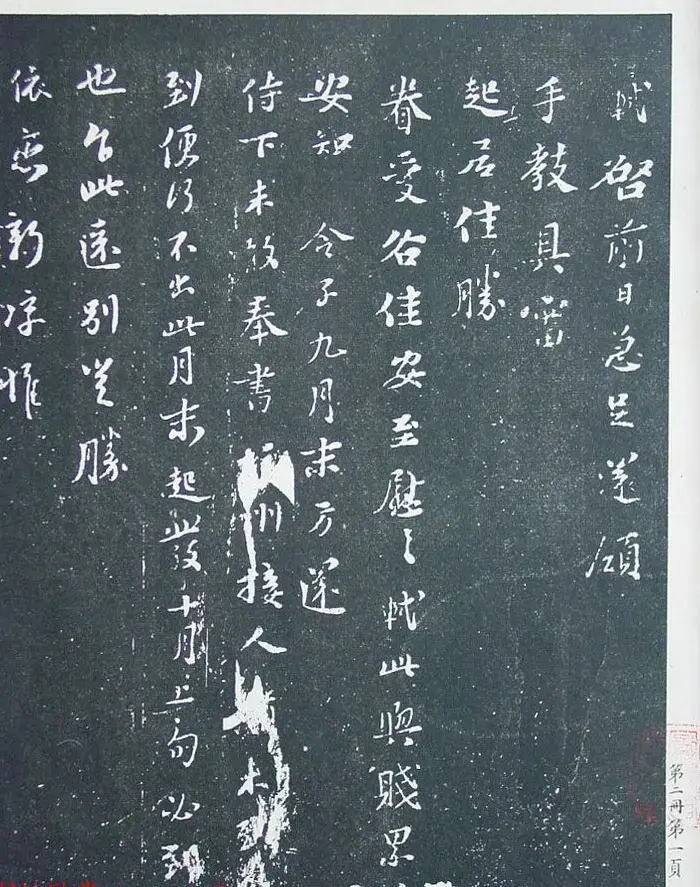 軾啓前日急足還領
手教具審
起居佳勝
眷愛各佳安至慰々軾此與賤累
安知 令子九月末方還
侍下未敢奉書 州接人 未到
到便行不出此月末起發十月上旬必到
也自此遠別 勝
依戀新涼惟
第二冊第一頁